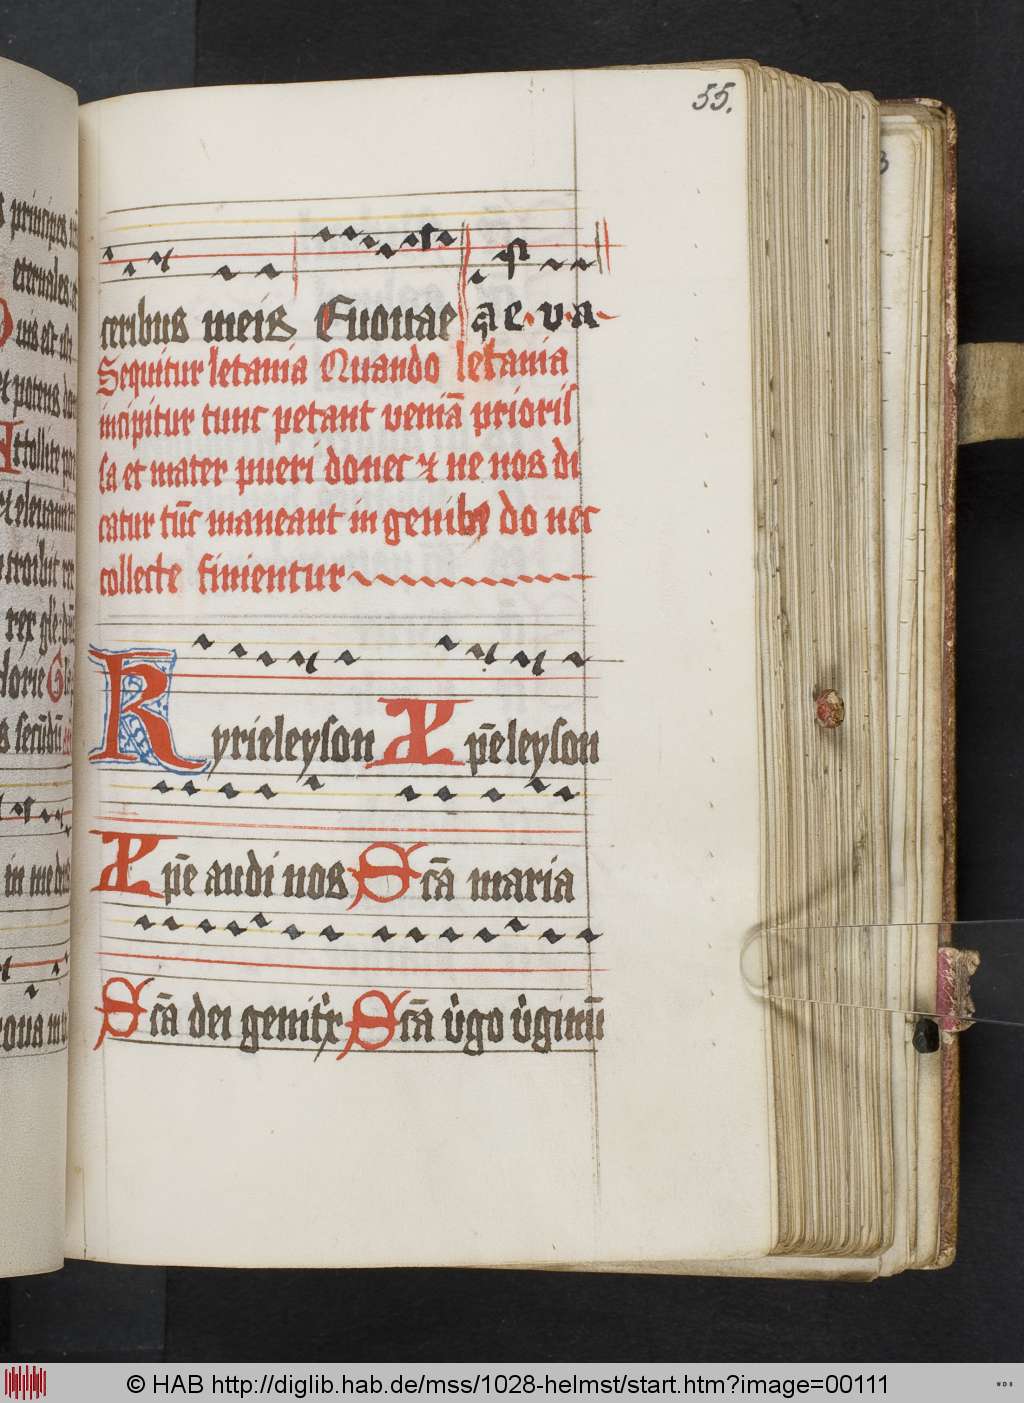 55.
ceribus meis Euouae ae va
Sequitur letania Quando letania
incipitur tunc petant veniā prioris
sa et mater pueri donec & ne nos di
catur tūc maneant in genibꝫ do nec
collecte finientur
Kyrieleyson Xp̄eleyson
Xp̄e audi nos Scā maria
Scā dei genitͥx Scā vͥgo vͥginū
s principes
eternales
potens
ttollite
et elevamini
rex
glorie
in med
© HAB http://diglib.hab.de/mss/1028-helmst/start.htm?image=00111